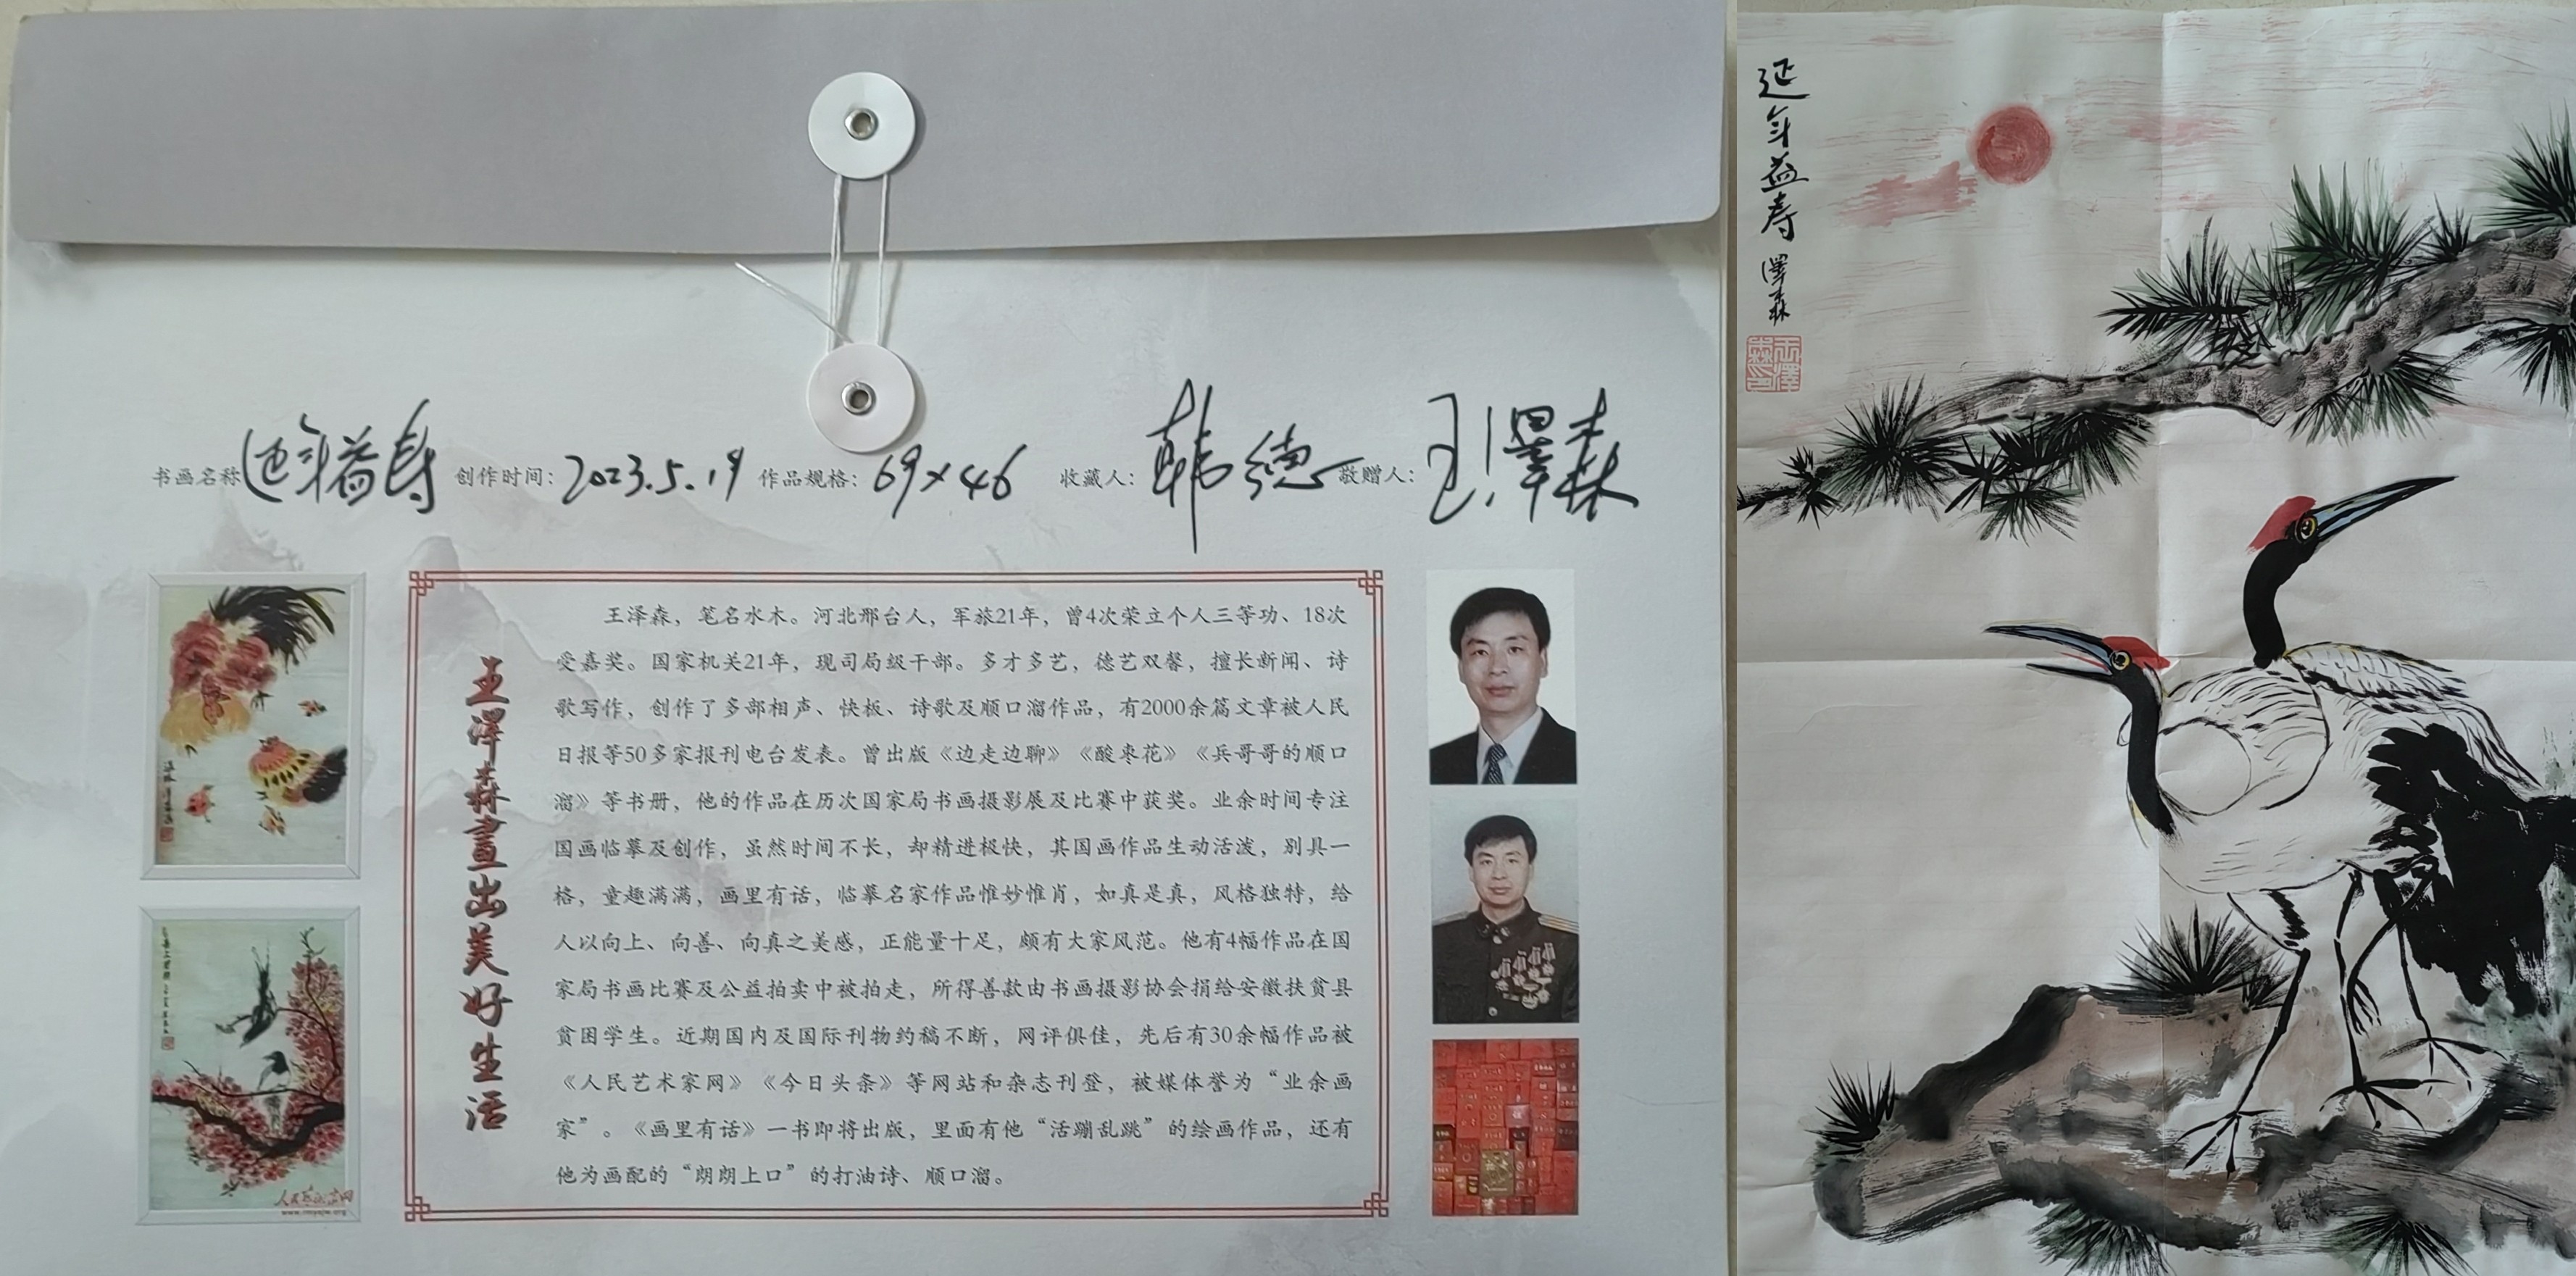 书画名称 延年益寿 创作时间: 2023.5.19 作品规格: 69×46 收藏人: 韩德 敬赠人: 王澤森
王澤森畫出美好生活
王泽森，笔名水木。河北邢台人，军旅21年，曾4次荣立个人三等功、18次
受嘉奖。国家机关21年，现司局级干部。多才多艺，德艺双馨，擅长新闻、诗
歌写作，创作了多部相声、快板、诗歌及顺口溜作品，有2000余篇文章被人民
日报等50多家报刊电台发表。曾出版《边走边聊》《酸枣花》《兵哥哥的顺口
溜》等书册，他的作品在历次国家局书画摄影展及比赛中获奖。业余时间专注
国画临摹及创作，虽然时间不长，却精进极快，其国画作品生动活泼，别具一
格，童趣满满，画里有话，临摹名家作品惟妙惟肖，如真是真，风格独特，给
人以向上、向善、向真之美感，正能量十足，颇有大家风范。他有4幅作品在国
家局书画比赛及公益拍卖中被拍走，所得善款由书画摄影协会捐给安徽扶贫县
贫困学生。近期国内及国际刊物约稿不断，网评俱佳，先后有30余幅作品被
《人民艺术家网》《今日头条》等网站和杂志刊登，被媒体誉为“业余画
家”。《画里有话》一书即将出版，里面有他“活蹦乱跳”的绘画作品，还有
他为画配的“朗朗上口”的打油诗、顺口溜。
延年益寿 澤森
王澤森印